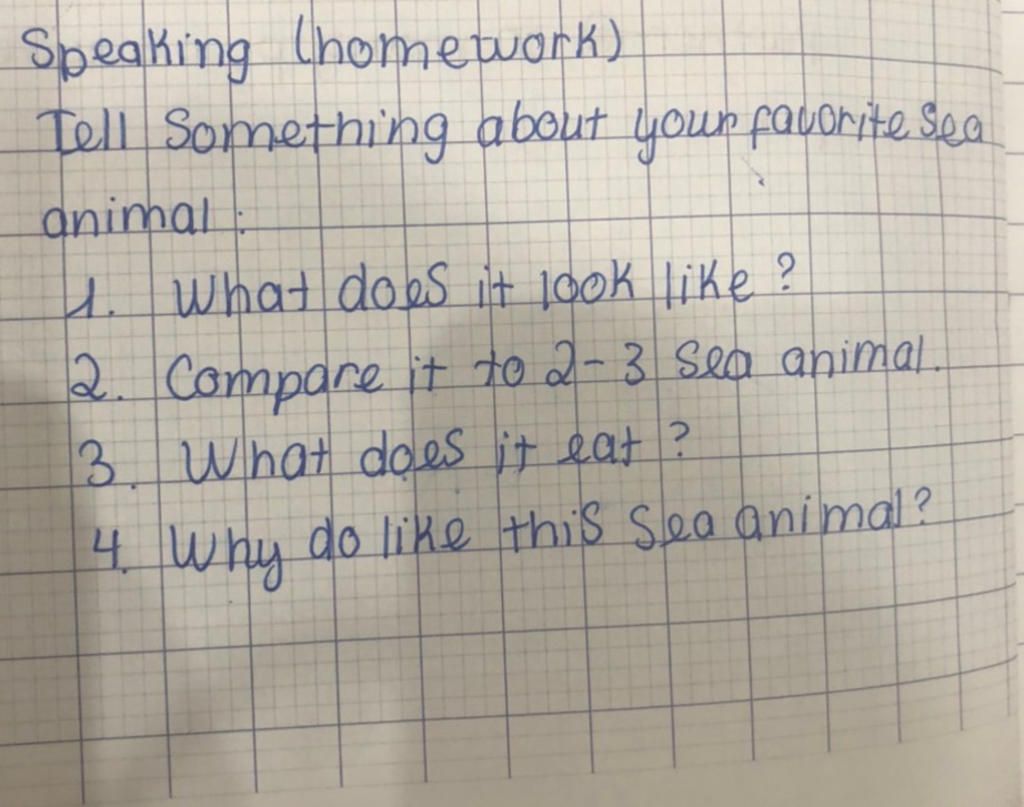 Speaking (homework)
Tell Something about your favorite Sea
animal:
1. What does it look like?
2. Compare it to 2-3 Sea animal.
3. What does it eat?
4. Why do like this Sea animal?